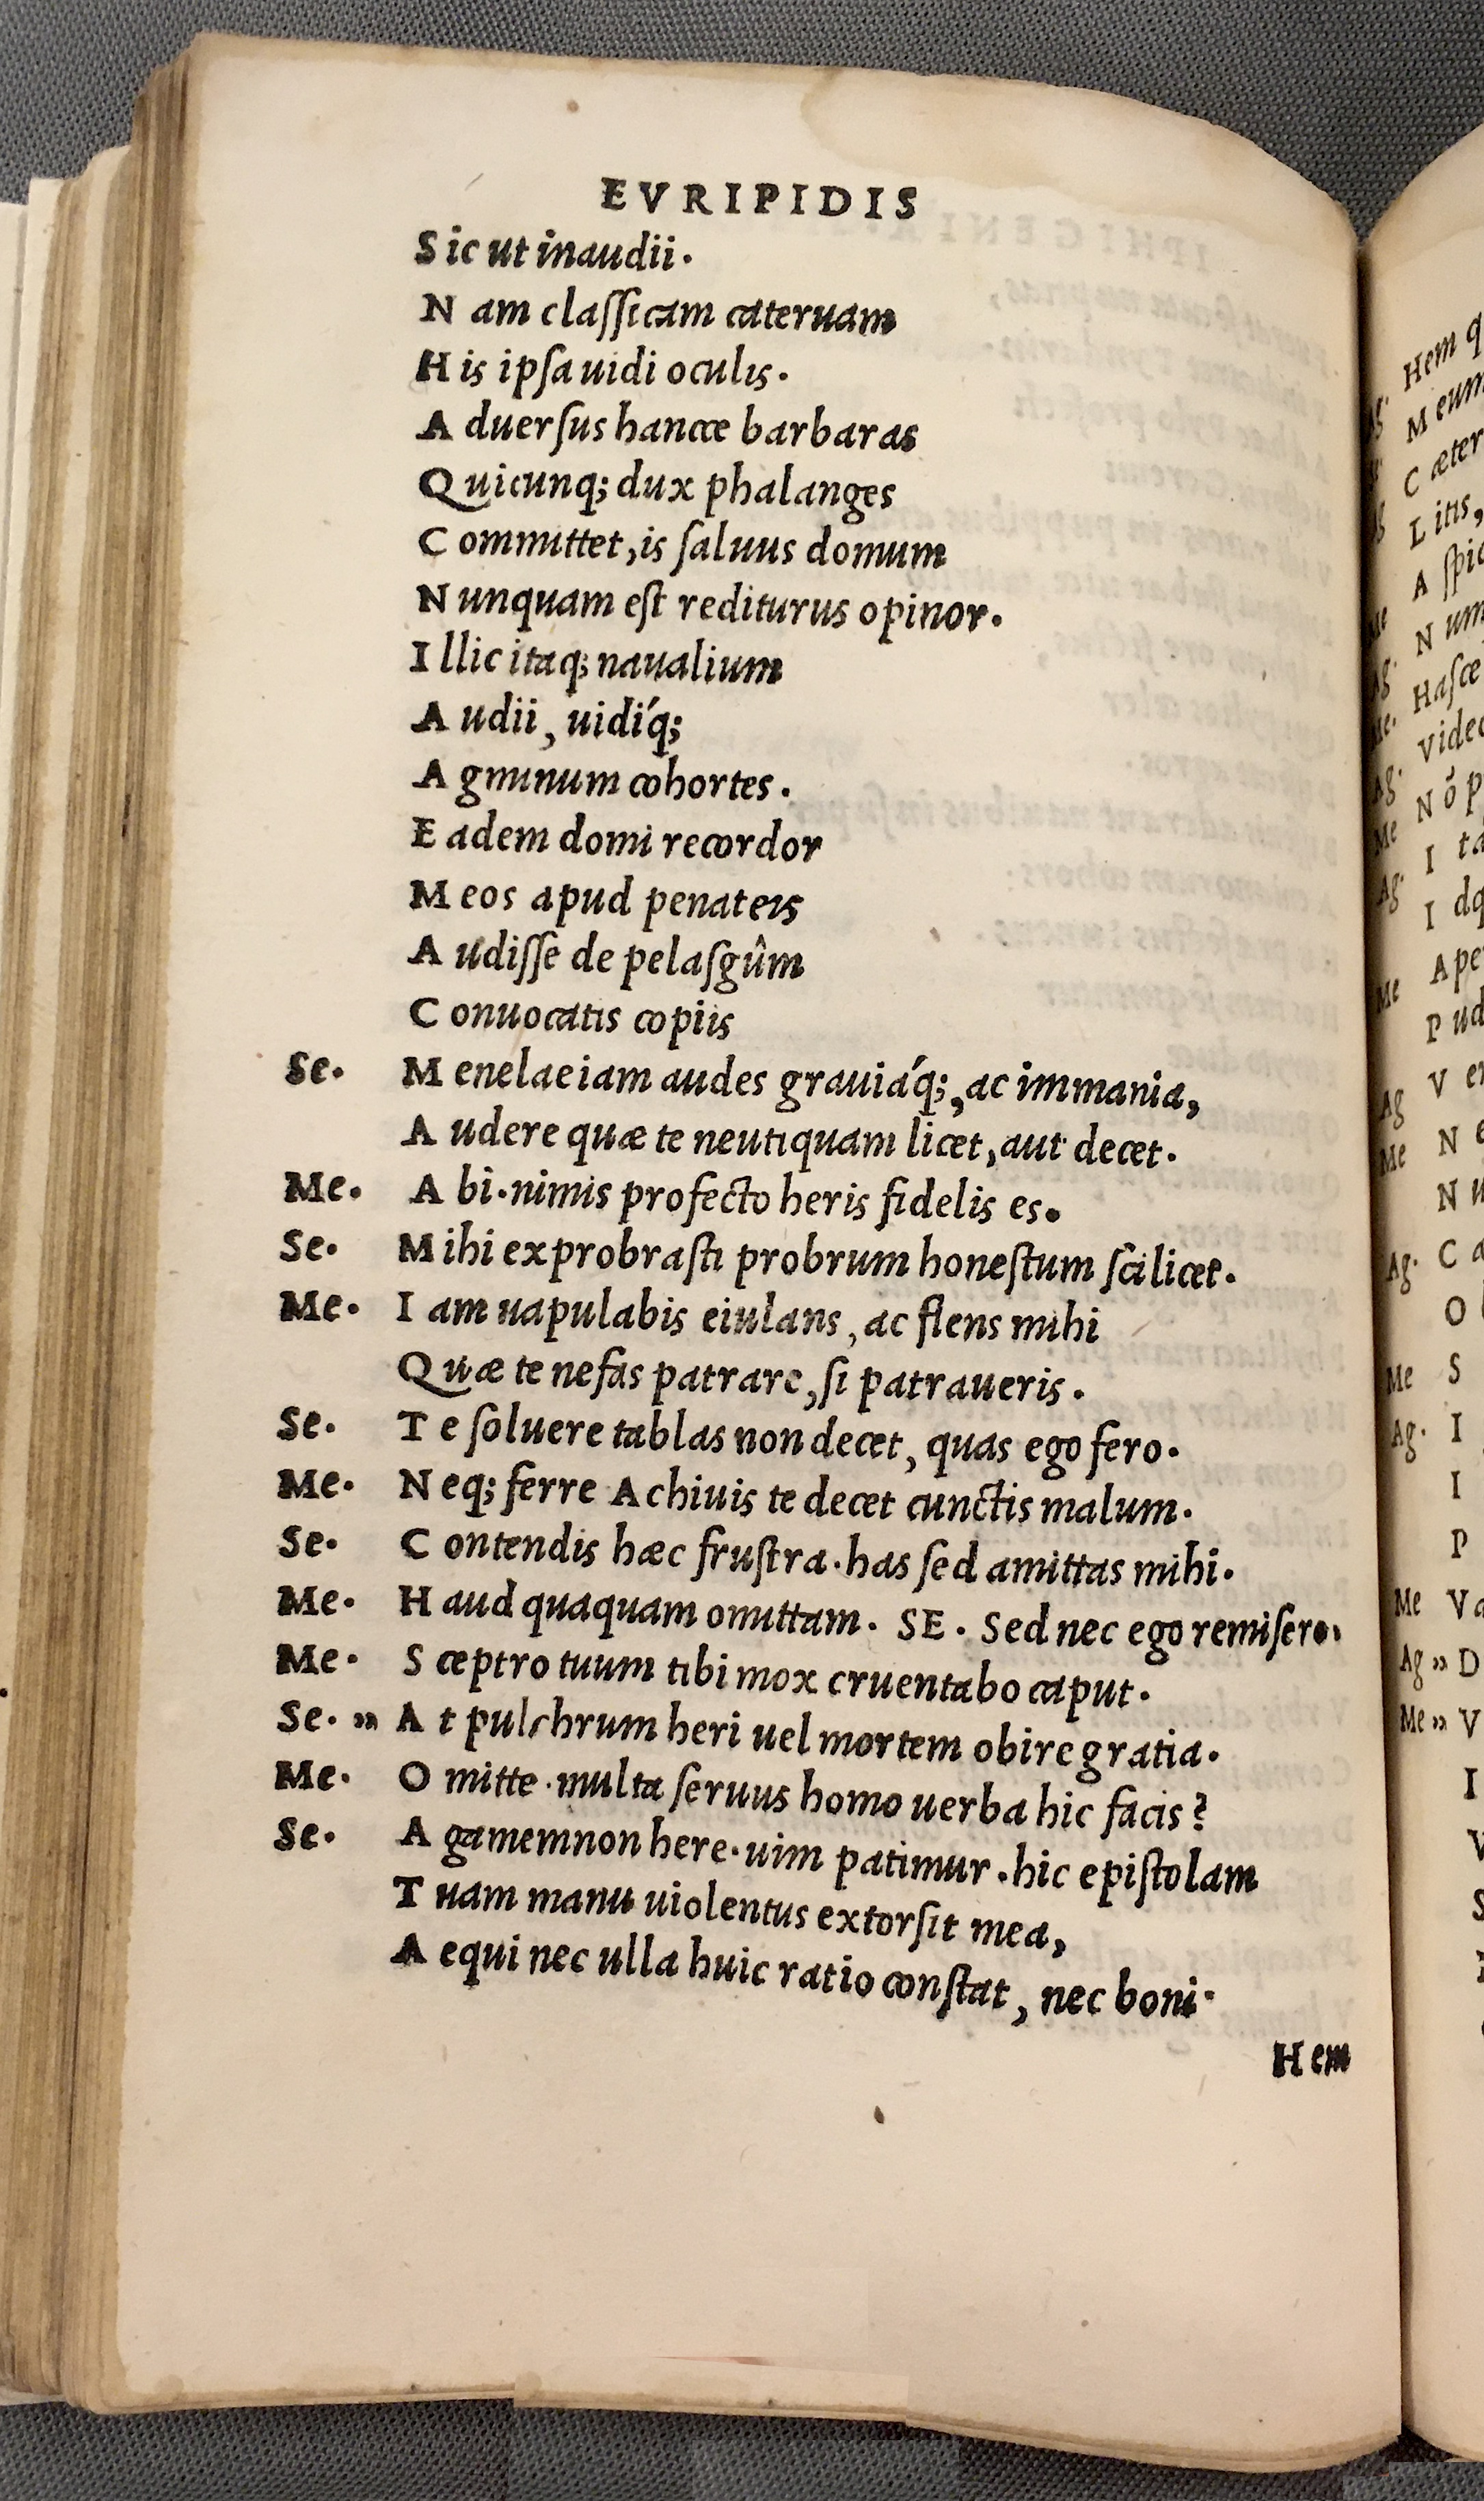 EVRIPIDIS
Sic ut inaudii.
Nam claſſicam cateruam
His ipſa uidi oculis.
Aduerſus hancce barbaras
Quicunq; dux phalanges
Committet, is ſaluus domum
Nunquam eſt rediturus opinor.
Illic itaq; naualium
Audii, uidiq́;
Agminum cohortes.
Eadem domi recordor
Meos apud penateis
Audiſſe de pelaſgûm
Conuocatis copiis
Se. Menelae iam audes grauiaq́;, ac immania,
Audere quæ te neutiquam licet, aut decet.
Me. Abi. nimis profecto heris fidelis es.
Se. Mihi exprobraſti probrum honeſtum ſcilicet.
Me. Iam uapulabis eiulans, ac flens mihi
Quæ te nefas patrare, ſi patraueris.
Se. Te ſoluere tablas non decet, quas ego fero.
Me. Neq; ferre Achiuis te decet cunctis malum.
Se. Contendis hæc fruſtra. has ſed amittas mihi.
Me. Haud quaquam omittam. SE. Sed nec ego remiſero.
Me. Sceptro tuum tibi mox cruentabo caput.
Se. » At pulchrum heri uel mortem obire gratia.
Me. Omitte. multa ſeruus homo uerba hic facis?
Se. Agamemnon here. uim patimur. hic epiſtolam
Tuam manu uiolentus extorſit mea,
Aequi nec ulla huic ratio conſtat, nec boni.
Hem
Hem
Meum
Cæter
Litis,
Aſpic
Num
Haſce
Nó